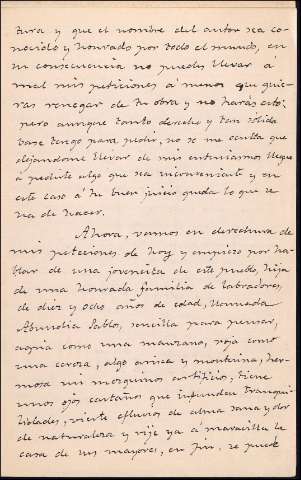 tura y que el nombre del autor sea co-
nocido y honrado por todo el mundo, en
su consecuencia no puedes llevar á
mal mis peticiones á menos que quie-
ras renegar de tu obra y no harás esto;
pero aunque tanto derecho y tan sólida
base tengo para pedir, no se me oculta que
dejándome llevar de mis entusiasmos llegue
á pedirte algo que sea inconveniente y en
este caso á tu buen juicio queda lo que se
ha de hacer.
Ahora, vamos en derechura de
mis peticiones de hoy y empiezo por ha-
blar de una jovencita de este pueblo, hija
de una honrada familia de labradores,
de diez y ocho años de edad, llamada
Abundia Pablos, sencilla para pensar,
agria como una manzana, roja como
una cereza, algo arisca y montuna, her-
mosa sin mezquinos artificios, tiene
unos ojos castaños que infunden tranqui-
lidades, vierte efluvios de alma sana y dor
de naturaleza y rije ya á maravilla la
casa de sus mayores, en fin, se puede